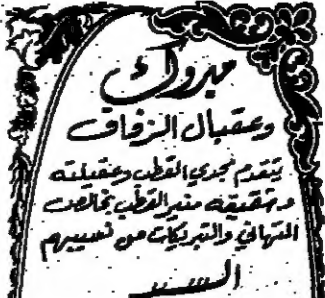 مبروك
وعقبال الزفاف
يتقدم مجدي القطب وعقيلته
وشقيقه منير القطب بخالص
التهاني والتبريكات من نسيبهم
السيد